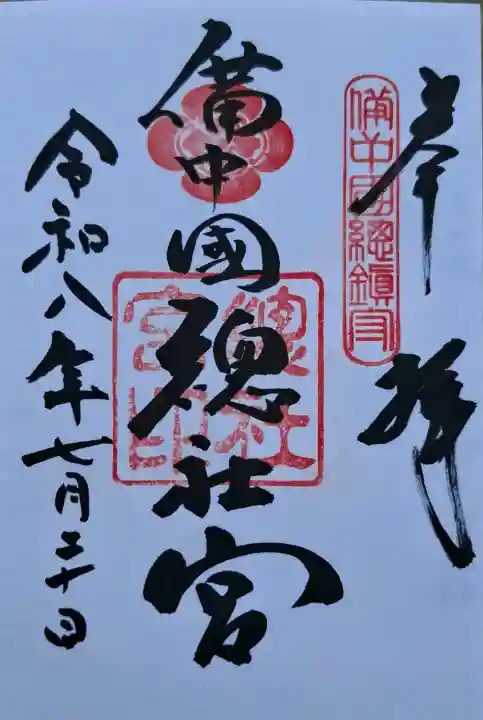 奉拝
備中國総鎮守
備中國総社宮
総社宮印
令和八年七月二十日